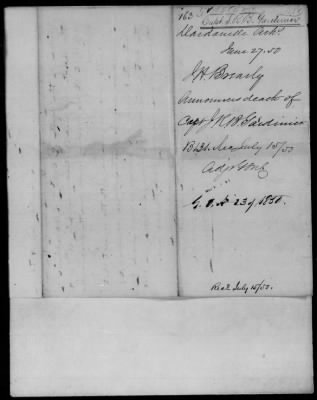 163
Capt. J.B.B. Gardenier
Dardanelle Arks.
June 27. 50
J.H. Brearly
Announces death of
Capt J.R.B. Gardinier
July 15/50
Adjt Genl
G.O. No 23 of 1850.
Recd July 15/50.